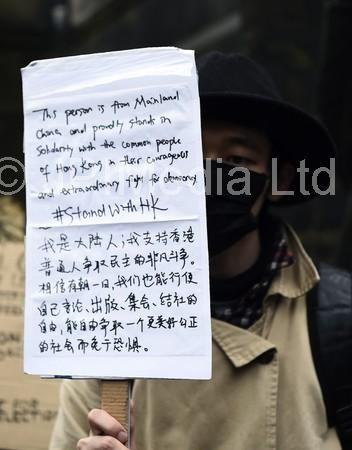 This person is from Mainland
China, and proudly stands in
solidarity with the common people
of Hong Kong in their courageous
and extraordinary fight for democracy
#StandWithHK
我是大陆人；我支持香港
普通人争取民主的非凡斗争。
相信有朝一日，我们也能行使
自己言论、出版、集会、结社的
自由，能自由争取一个更美好公正
的社会而免于恐惧。
media Ltd